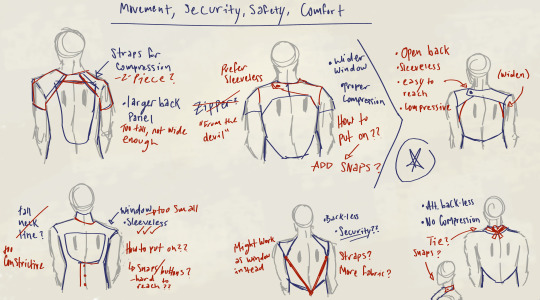 Movement, Security, Safety, Comfort
Straps for
compression
2 Piece?
• larger back
Panel
Too tall, not wide
enough
Prefer
Sleeveless
Zipper
"From the
devil"
• Wider
Window
• Proper
Compression
How to
put on??
ADD SNAPS?
• Open back
• Sleeveless
• easy to
reach
• Compressive
(widen)
tall
neck
line?
too
Constrictive
Window too small
• Sleeveless
How to put on??
↳ Snaps/buttons?
- hard to
reach??
Might work
as window
instead
• Back-less
• Security??
Straps?
More fabric?
• Alt. back-less
• No Compression
Tie?
Snaps?